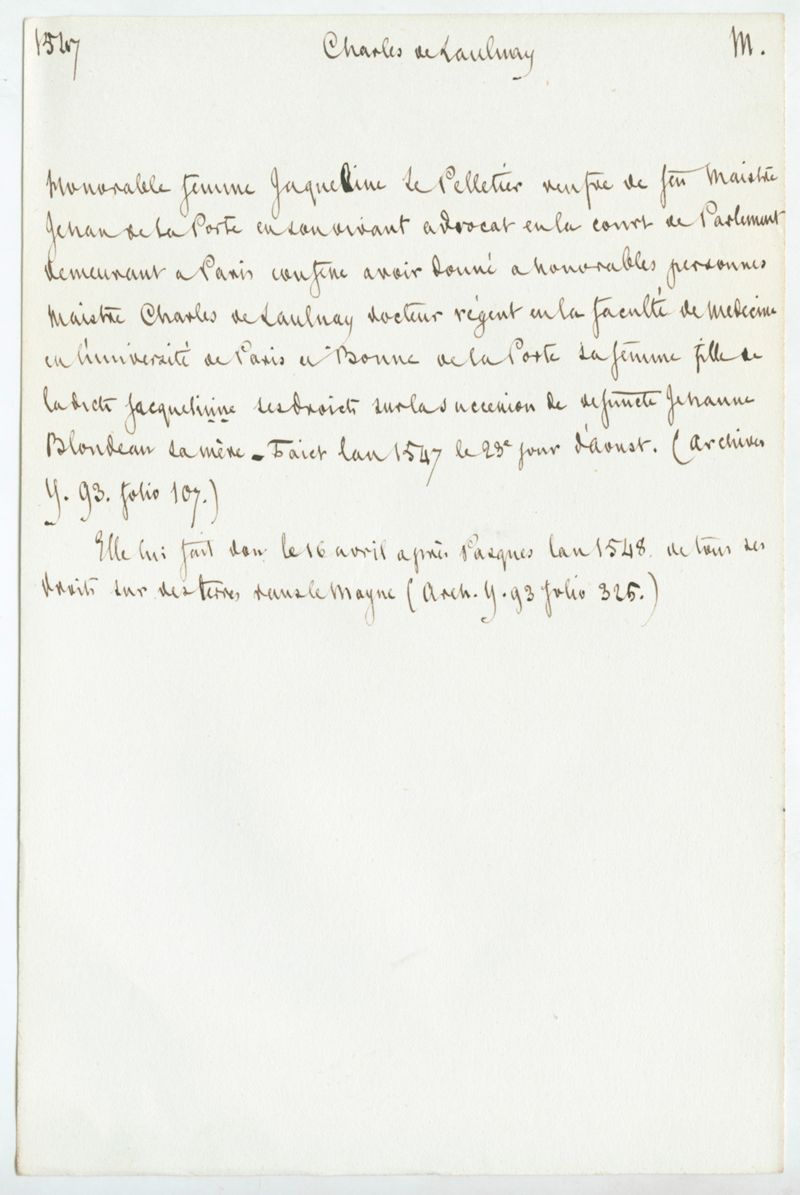 1547 Charles de Laulnay M.
Honorable femme Jaqueline Le Pelletier venfve de feu Maistre
Jehan de La Porte en son vivant advocat en la court de Parlement
demeurant a Paris confene avoir donné a honorables personnes
Maistre Charles de Laulnay docteur régent en la faculté de Medecine
en l'université de Paris et Bonne de la Porte sa femme fille de
la dicte Jacqueline ses droicts sur la succession de defuncte Jehanne
Blondeau sa mère - Faict lan 1547 le 23e jour d'Aoust. (Archives
Y. 93. folio 107.)
Elle lui fait don le 16 avril après Pasques lan 1548 de tous ses
droits sur des terres dans le Mayne (Arch. Y. 93 folio 325.)